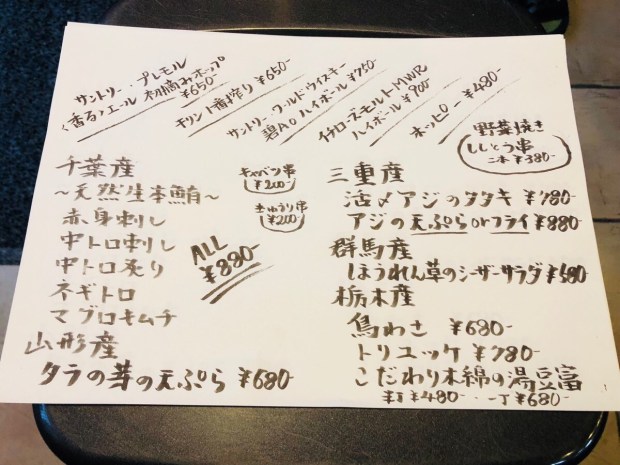 サントリー・プレモル
〈香る〉エール 初摘みホップ
¥650-
キリン一番搾り ¥650-
サントリー・ワールドウイスキー
碧Ao ハイボール ¥750-
イチローズモルトMWR
ハイボール ¥900-
ホッピー ¥480-
野菜焼き
ししとう串
二本 ¥380-
千葉産
〜天然生本鮪〜
赤身刺し
中トロ刺し
中トロ炙り
ネギトロ
マグロキムチ
ALL
¥880-
キャベツ串
¥200-
きゅうり串
¥200-
山形産
タラの芽の天ぷら ¥680-
三重産
活〆アジのタタキ ¥780-
アジの天ぷらorフライ ¥880-
群馬産
ほうれん草のシーザーサラダ ¥580-
栃木産
鳥わさ ¥680-
トリユッケ ¥780-
こだわり木綿の湯豆富
半丁 ¥480- 一丁 ¥680-